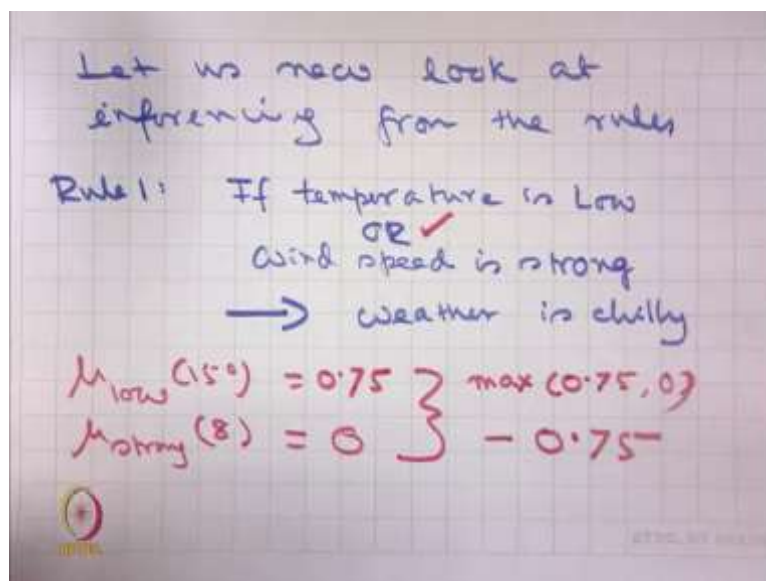 Let us now look at
inferencing from the rules
Rule 1: If temperature is Low
OR ✓
Wind speed is strong
→ weather is chilly
μlow (15°) = 0.75 } max (0.75, 0)
μstrong (8) = 0 } - 0.75
NPTEL